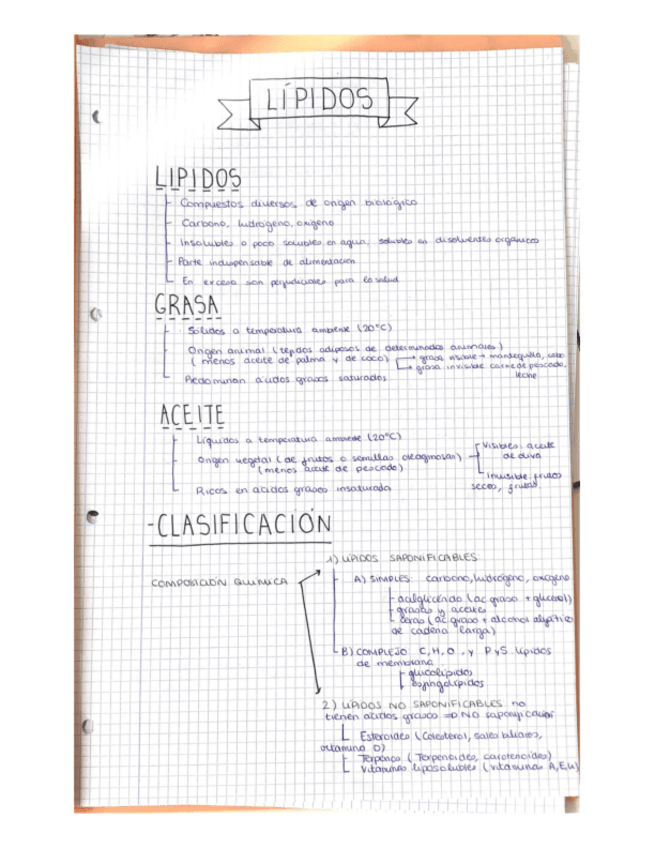 LÍPIDOS
LIPIDOS
Compuestos diversos de origen biológico
Carbono, hidrógeno, oxígeno
Insolubles o poco solubles en agua, solubles en disolventes orgánicos
Parte indispensable de alimentación
En exceso son perjudiciales para la salud
GRASA
Sólidos a temperatura ambiente (20°C)
Origen animal (tejidos adiposos de determinados animales)
(menos aceite de palma y de coco) grasa visible → mantequilla, sebo
grasa invisible carne de pescado,
leche
Predominan ácidos grasos saturados
ACEITE
Líquidos a temperatura ambiente (20°C)
Origen vegetal (de frutos o semillas oleaginosas) → Visibles: aceite
de oliva
(menos aceite de pescado)
invisible: frutos
secos, frutas
Ricos en ácidos grasos insaturada
-CLASIFICACIÓN
1) LÍPIDOS SAPONIFICABLES
COMPOSICIÓN QUÍMICA
A) SIMPLES: carbono, hidrógeno, oxígeno
acilglicérido (ac graso + glicerol)
grasas y aceites
ceras (ac. graso + alcohol
de cadena larga)
B) COMPLEJO C, H, O, y P y S. lípidos
de membrana
glucolípidos
esfingolípidos
2) LÍPIDOS NO SAPONIFICABLES no
tienen ácidos grasos => NO saponificación
Esteroides (Colesterol, sales biliares,
vitamina D)
Terpenos (Terpenoides, carotenoides)
Vitaminas liposolubles (vitaminas A, E, K)